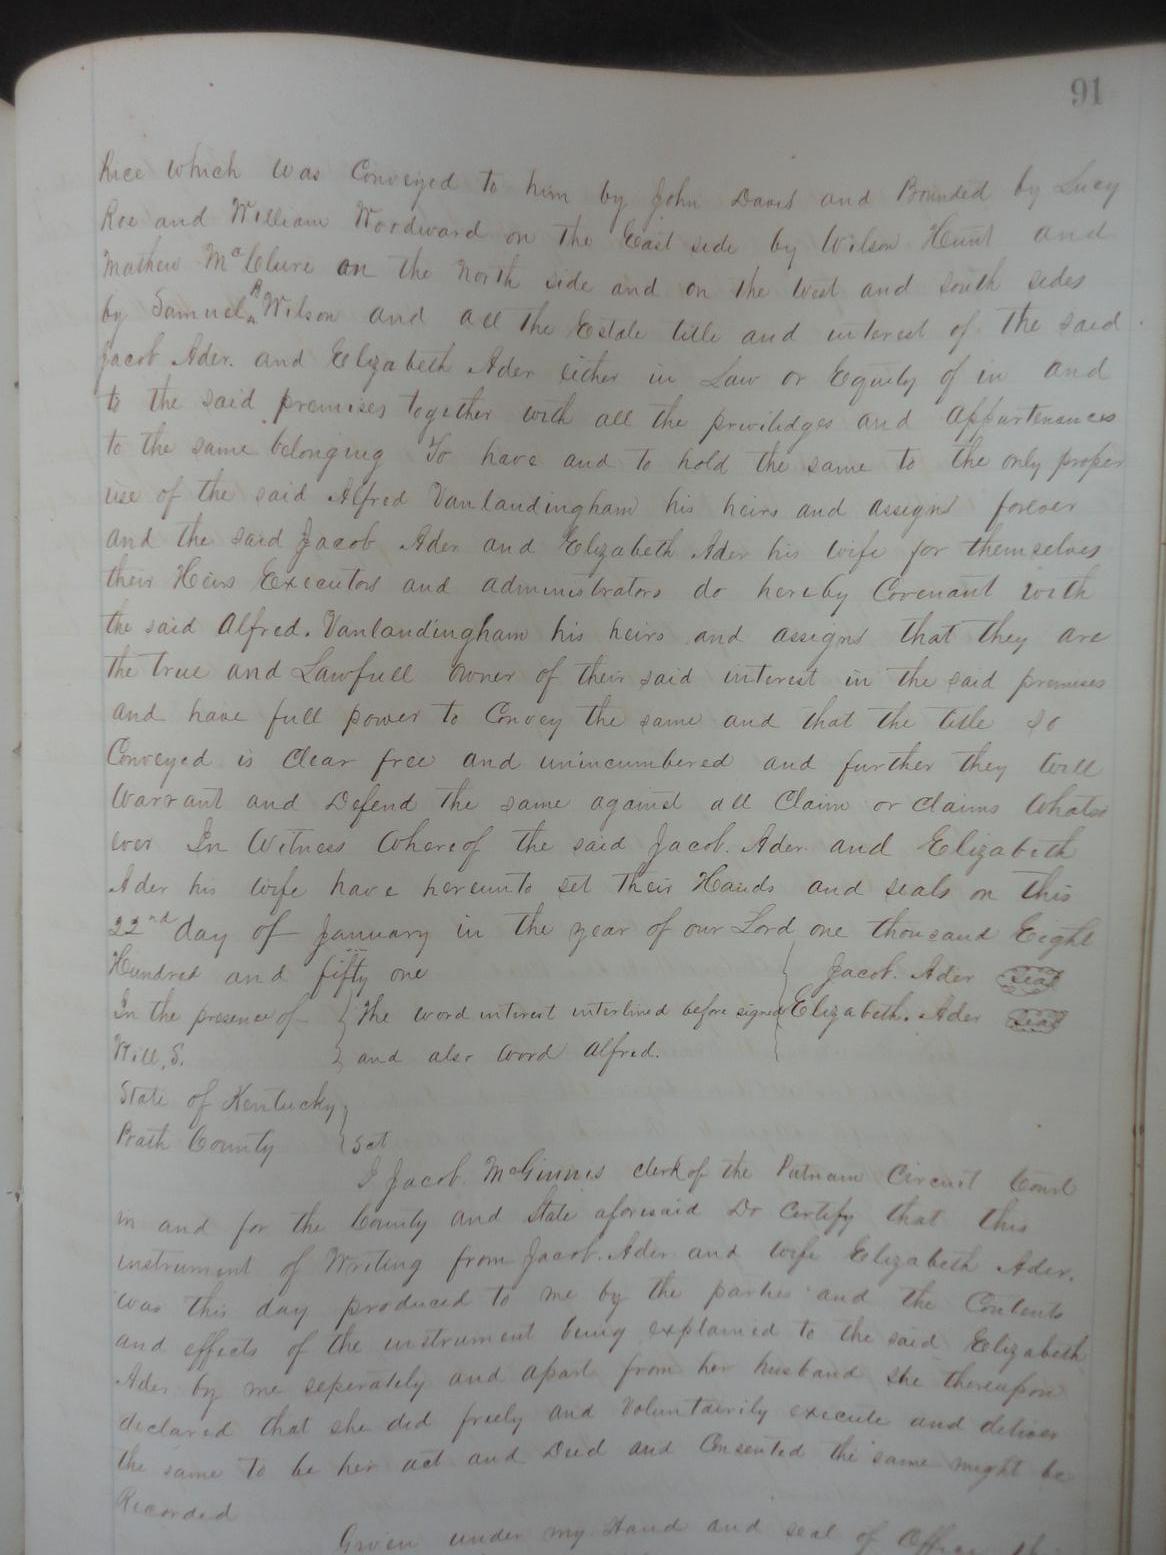 91
Rice which was Conveyed to him by John Davis and Bounded by Lucy
Roe and William Woodward on the East side by Wilson Hunt and
Mathew McClure on the North side and on the West and south sides
by Samuel R Wilson and all the Estate title and interest of the said
Jacob Ader. and Elizabeth Ader either in Law or Equity of in and
to the said premises together with all the priviledges and appurtenances
to the same belonging To have and to hold the same to the only proper
use of the said Alfred Vanlandingham his heirs and assigns forever
and the said Jacob Ader and Elizabeth Ader his wife for themselves
their Heirs Executors and administrators do hereby Covenant with
the said Alfred. Vanlandingham his heirs and assigns that they are
the true and Lawfull owner of their said interest in the said premises
and have full power to Convey the same and that the title so
Conveyed is Clear free and unincumbered and further they will
Warrant and Defend the same against all Claim or claims whatso
ever In Witness Whereof the said Jacob. Ader and Elizabeth
Ader his wife have hereunto set their Hands and seals on this
22nd day of January in the year of our Lord one thousand Eight
Hundred and fifty one Jacob. Ader seal
In the presence of The word interest interlined before signed Elizabeth. Ader seal
Will. S. and also word Alfred.
State of Kentucky
County Sct
I Jacob. McGinnis clerk of the Putnam Circuit Court
in and for the County and State aforesaid Do Certify that this
instrument of Writing from Jacob. Ader and wife Elizabeth Ader.
was this day produced to me by the parties and the Contents
and effects of the instrument being explained to the said Elizabeth
Ader by me seperately and apart from her husband she thereupon
declared that she did freely and Voluntairily execute and deliver
the same to be her act and Deed and Consented the same might be
Recorded
Given under my Hand and seal of Office